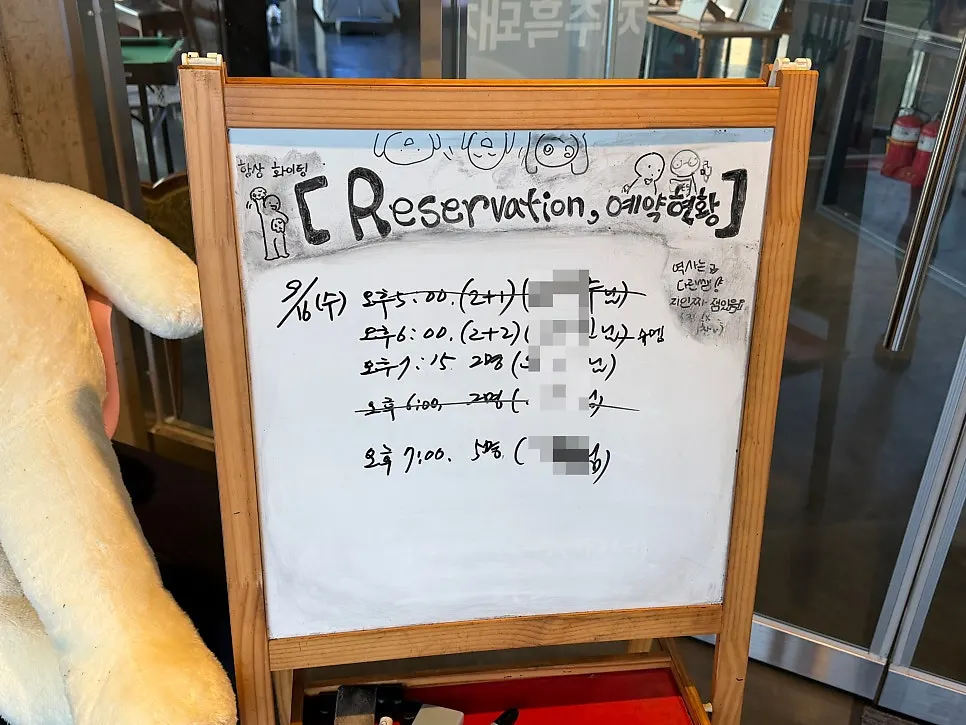 제주흑돼지
항상 화이팅
[Reservation, 예약현황]
역사는 곧
다른쌤
지인짜 잼있음
9/16(수) 오후5:00. (2+1) ( 님)
오후6:00. (2+2) ( 님)
오후7:15 2명 ( 님)
오후 6:00, 2명 (
오후 7:00. 5명 ( 님)